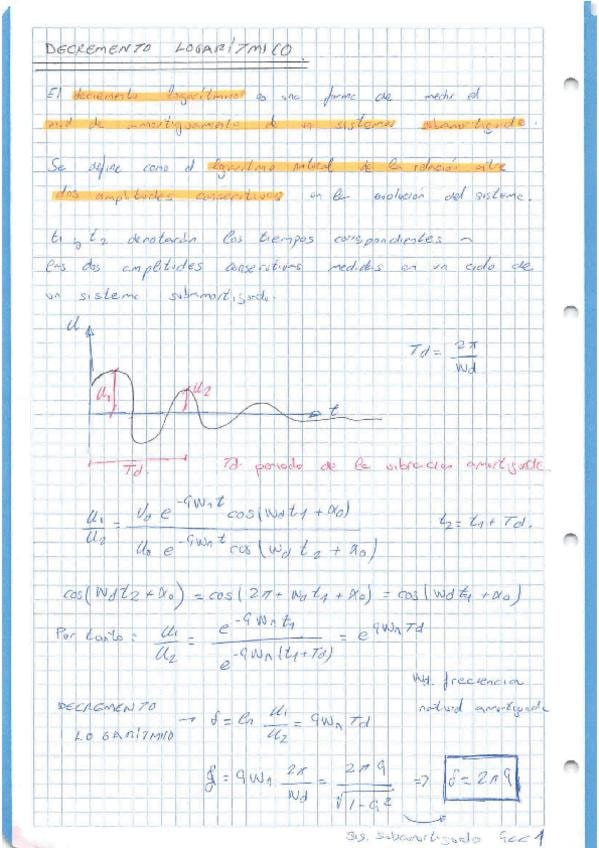 DECREMENTO LOGARÍTMICO.
El decremento logarítmico es una forma de medir el
nivel de amortiguamiento de un sistema subamortiguado.
Se define como el logaritmo natural de la relación entre
dos amplitudes consecutivas en la evolución del sistema.
t1 y t2 denotarán los tiempos correspondientes a
las dos amplitudes consecutivas medidas en un ciclo de
un sistema subamortiguado.
U
Td = 2π / Wd
U1 U2 t
Td. Td: periodo de la vibración amortiguada
U1/U2 = U0 e^-ςWnt cos(Wdt1 + α0) / U0 e^-ςWnt cos(Wd t2 + α0) t2 = t1 + Td.
cos(Wdt2 + α0) = cos(2π + Wdt1 + α0) = cos(Wdt1 + α0)
Por tanto: U1/U2 = e^-ςWnt1 / e^-ςWn(t1+Td) = e^ςWnTd
Wd: frecuencia
natural amortiguada
DECREMENTO
LOGARÍTMICO → δ = ln U1/U2 = ςWn Td
δ = ςWn 2π/Wd = 2πς / √1-ς² => δ = 2πς
Sis. subamortiguado ς<<1